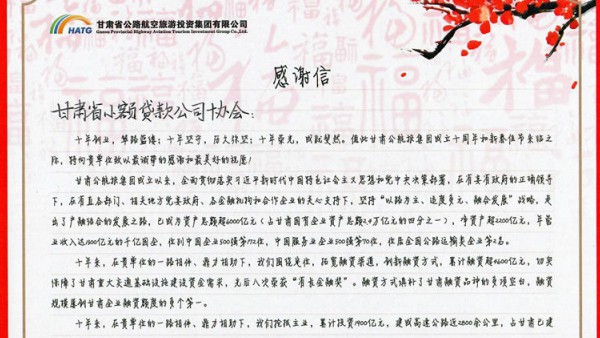 HATG
甘肃省公路航空旅游投资集团有限公司
Gansu Provincial Highway Aviation Tourism Investment Group Co., Ltd.
感谢信
甘肃省小额贷款公司协会：
十年创业，筚路蓝缕；十年坚守，历久弥坚；十年荣光，成就斐然。值此甘肃公航旅集团成立十周年和新春佳节来临之
际，特向贵单位致以最诚挚的感谢和最美好的祝愿！
甘肃公航旅集团成立以来，全面贯彻落实习近平新时代中国特色社会主义思想和党中央决策部署，在省委省政府的正确领导
下，在省直各部门、相关地方党委政府、各金融机构和合作企业的关心支持下，坚持“以路为主、适度多元、融合发展”战略，走
出了产融结合的发展之路，已成为资产总额超6000亿元（占甘肃国有企业资产总额2.4万亿元的四分之一），净资产超2200亿元，年营
业收入达1000亿元的千亿国企，位列中国企业500强第172位，中国服务业企业500强第70位，位居全国公路运输类企业第2名。
十年来，在贵单位的一路相伴、鼎力相助下，我们围绕是位，拓宽融资渠道，创新融资方式，累计融资超4600亿元，切实
保障了甘肃重大交通基础设施建设资金需求，先后八次荣获“省长金融奖”。融资方式填补了甘肃融资品种的多项空白，融资
规模屡创甘肃企业融资额度的多个第一。
十年来，在贵单位的一路相伴、鼎力相助下，我们挖掘主业，累计投资1900亿元，建成高速公路近2800余公里，占甘肃已建